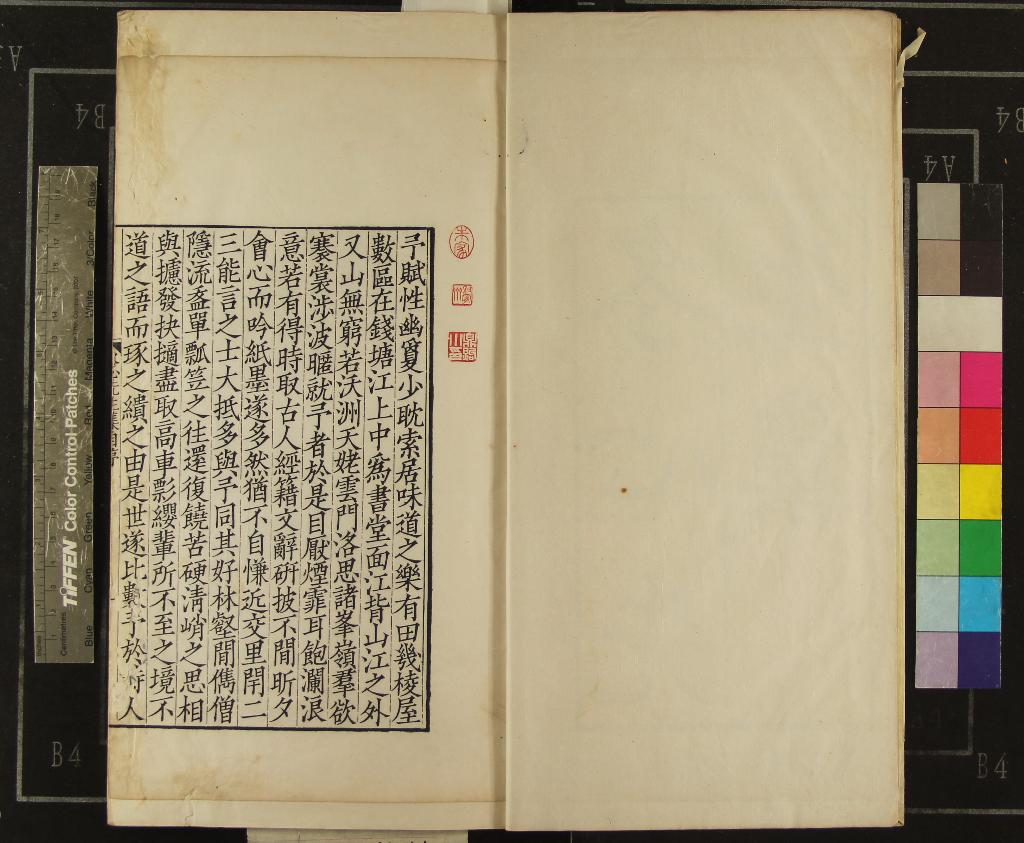 予賦性幽夐少耽索居味道之樂有田幾棱屋
數區在錢塘江上中爲書堂面江背山江之外
又山無窮若沃洲天姥雲門洛思諸峯嶺羣欲
褰裳涉波暱就予者於是目厭煙霏耳飽瀾浪
意若有得時取古人經籍文辭硏披不間昕夕
會心而吟紙墨遂多然猶不自慊近交里閈二
三能言之士大抵多與予同其好林壑間儁僧
隱流盋單瓢笠之往還復饒苦硬淸峭之思相
與攄發抉擿盡取高車影纓輩所不至之境不
道之語而琢之繢之由是世遂比數予於詩人
TIFFEN Color Control Patches
Blue
Cyan
Green
Yellow
Red
Magenta
White
3/Color
Black
Centimetres
Inches
B4
B4
B4
B4
A4
A3